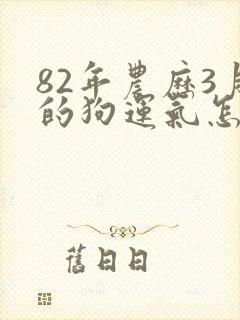 82年農歷3
的狗運氣怎
舊日日